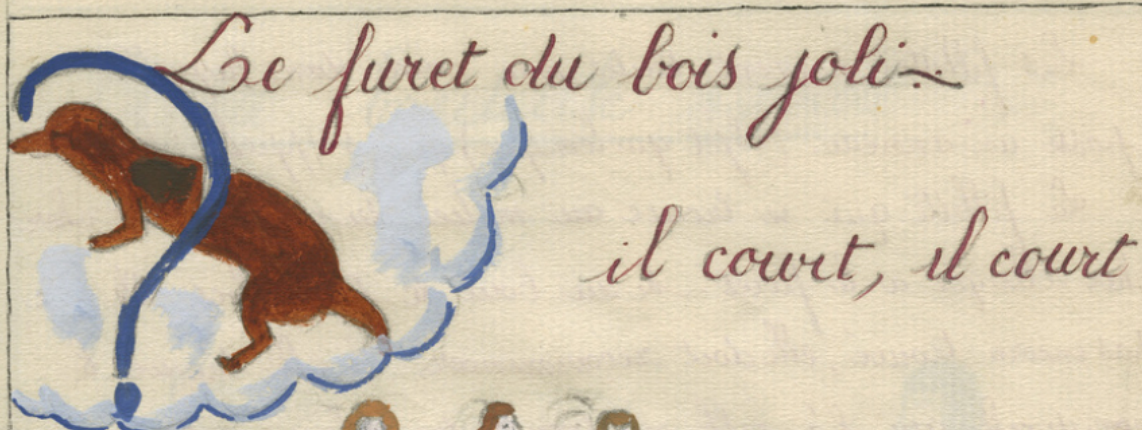 Le furet du bois joli.
il court, il court